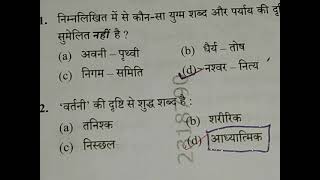 1. निम्नलिखित में से कौन-सा युग्म शब्द और पर्याय की दृ
सुमेलित नहीं है ?
(a) अवनी – पृथ्वी (b) धैर्य – तोष
(c) निगम – समिति (d) नश्वर – नित्य
2. 'वर्तनी' की दृष्टि से शुद्ध शब्द है :
(a) तनिश्क (b) शरीरिक
(c) निस्छल (d) आध्यात्मिक